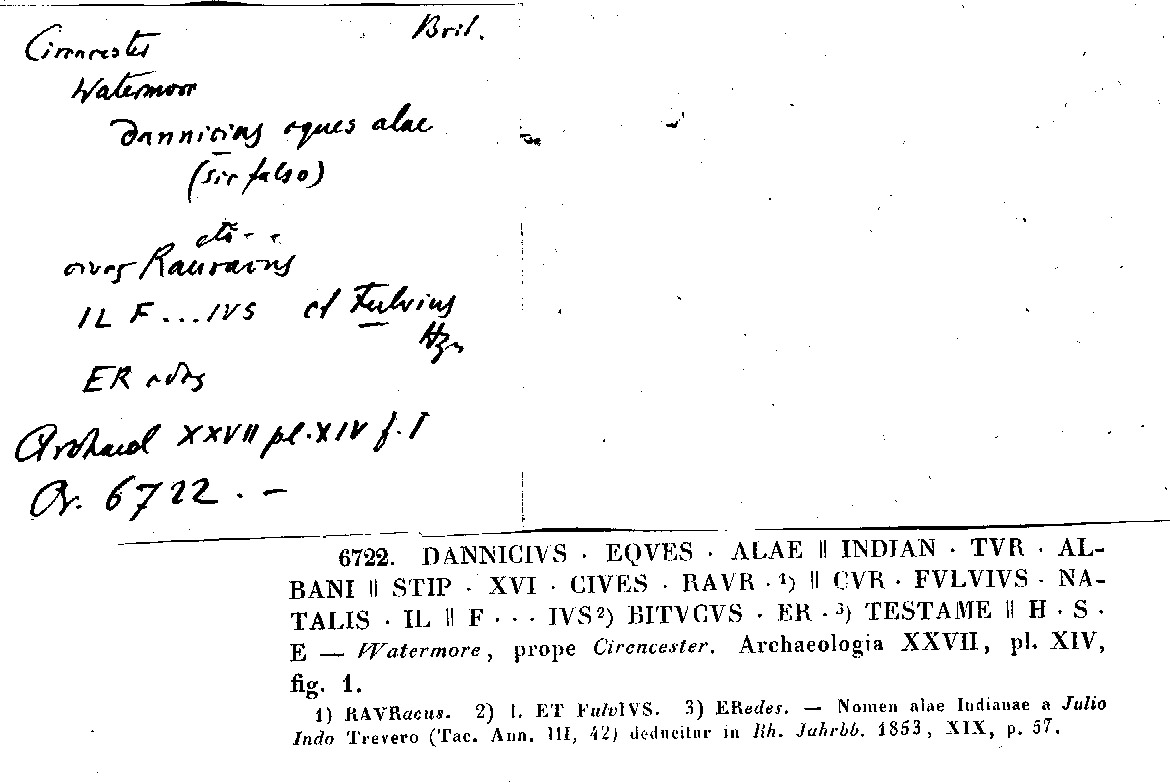 Cirencester
Brit.
Watermoor
Dannicius eques alae
(sic falso)
etc - -
cives Rauracus
IL F...IVS et Fulvius
Hzn
ER edes
Archaeol XXVII pl. XIV f. I
Or. 6722. -
6722. DANNICIVS · EQVES · ALAE || INDIAN · TVR · AL-
BANI || STIP · XVI · CIVES · RAVR · ¹) || CVR · FVLVIVS · NA-
TALIS · IL || F · · · IVS ²) BITVCVS · ER · ³) TESTAME || H · S ·
E — Watermore, prope Cirencester. Archaeologia XXVII, pl. XIV,
fig. 1.
1) RAVRacus. 2) I. ET FulvIVS. 3) ERedes. — Nomen alae Indianae a Julio
Indo Trevero (Tac. Ann. III, 42) deducitur in Rh. Jahrbb. 1853, XIX, p. 57.